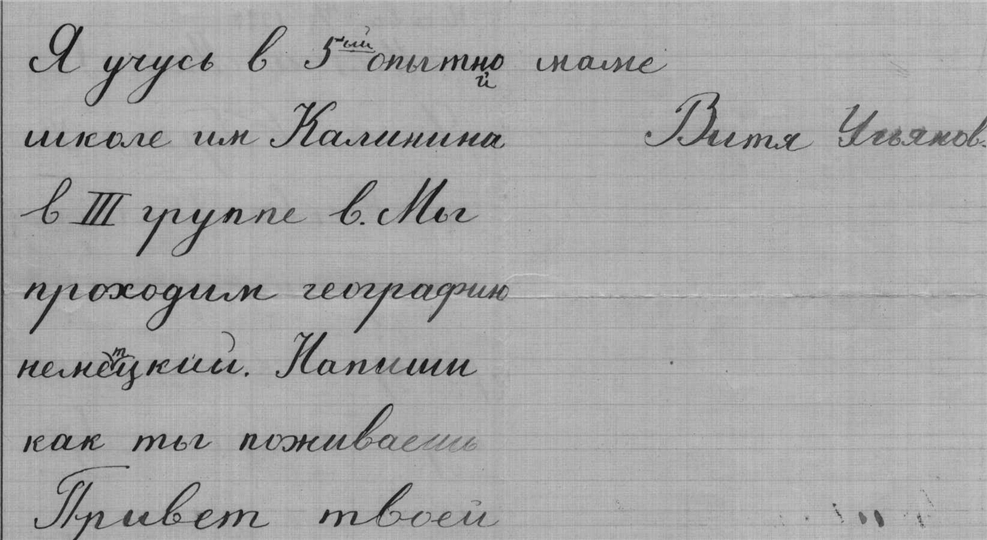 Я учусь в 5ый опытной
школе им Калинина
в III группе в. Мы
проходим географию
немецкий. Напиши
как ты поживаешь
Привет твоей
маме
Витя Ульянов.